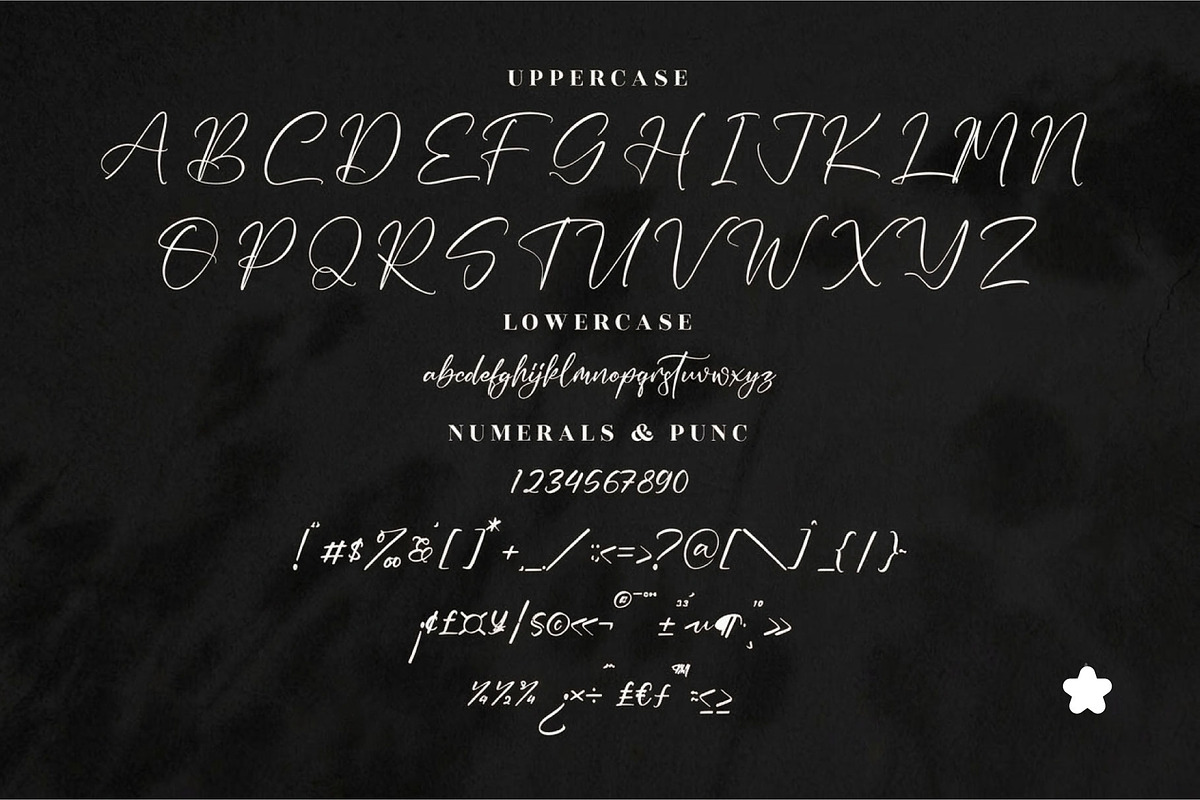 UPPERCASE
ABCDEFGHIJKLMN
OPQRSTUVWXYZ
LOWERCASE
abcdefghijklmnopqrstuvwxyz
NUMERALS & PUNC
1234567890
!"#$%‰&'[]*+,-./:;<=>?@[\]^_{|}~
¡¢£¤¥¦§©«¬®¯°±²³´µ¶·¸¹º»
¼½¾¿×÷ ₤€ƒ™≈≤≥